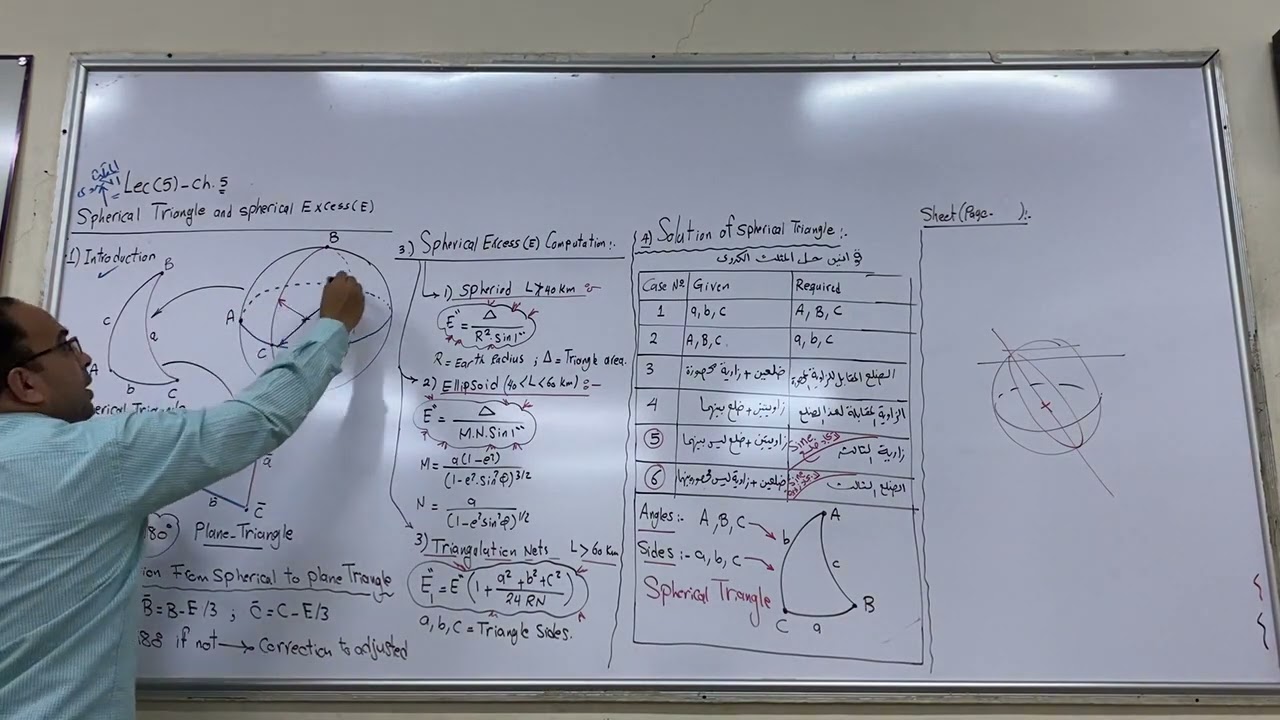 Lec(5)-ch.5
Spherical Triangle and spherical Excess(E)
1) Introduction
B
c
a
A
b
C
B
A
C
ā
b̄
C̄
80°
Plane-Triangle
From spherical to plane Triangle
B̄=B-E/3 ; C̄=C-E/3
if not → Correction to adjusted
3) Spherical Excess(E) Computation:-
E" = Δ / R².Sin1"
R = Earth Radius ; Δ = Triangle area.
2) Ellipsoid (40<L<60 km) :-
E" = Δ / M.N.Sin1"
M = a(1-e²) / (1-e².sin²φ)^3/2
N = a / (1-e²sin²φ)^1/2
3) Triangulation Nets L>60 Km
E₁" = E" (1 + a²+b²+c² / 24 RN)
a,b,c = Triangle Sides.
4) Solution of Spherical Triangle:-
قوانين حل المثلث الكروى
Case No Given Required
1 a,b,c A, B, C
2 A,B,C. a, b, c
3 ضلعين + زاوية محصورة الضلع المقابل للزاوية
4 زاويتين + ضلع بينهما الزاوية المقابلة لهذا الضلع
5 زاويتين + ضلع ليس بينهما Sine زاوية الثالث
6 ضلعين + زاوية ليس محصورة بينهما Sine الضلع الثالث
Angles:- A, B, C
Sides:- a, b, c
Spherical Triangle
A
b
c
B
C
a
Sheet(Page- ):-